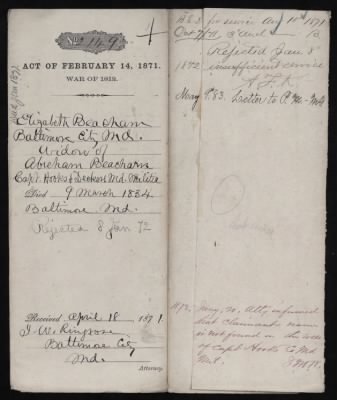 No. 149
4
ACT OF FEBRUARY 14, 1871.
WAR OF 1812.
Elizabeth Beacham
Baltimore City Md.
widow of
Abraham Beacham
Capt. Hooks & Deckers Md. Militia
Died 9 March 1834
Baltimore Md.
Rejected 8 Jan 72
Received April 18 1871.
Baltimore City
Md.
Attorney.
for service Aug 10th 1871
Rejected Jan 8
1872 insufficient service
May 9. 83. Letter to P.M.
1872, May, 20, Atty informed
that claimants name
is not found on the rolls
of Capt Hooks Co Md
Mil.